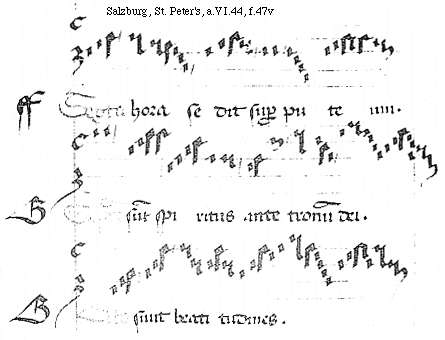 Salzburg, St. Peter's, a.VI.44, f.47v
Sexta hora se dit sup̄ pu te um.
sūt spi ritus ante tronū dei.
sunt beati tudines.